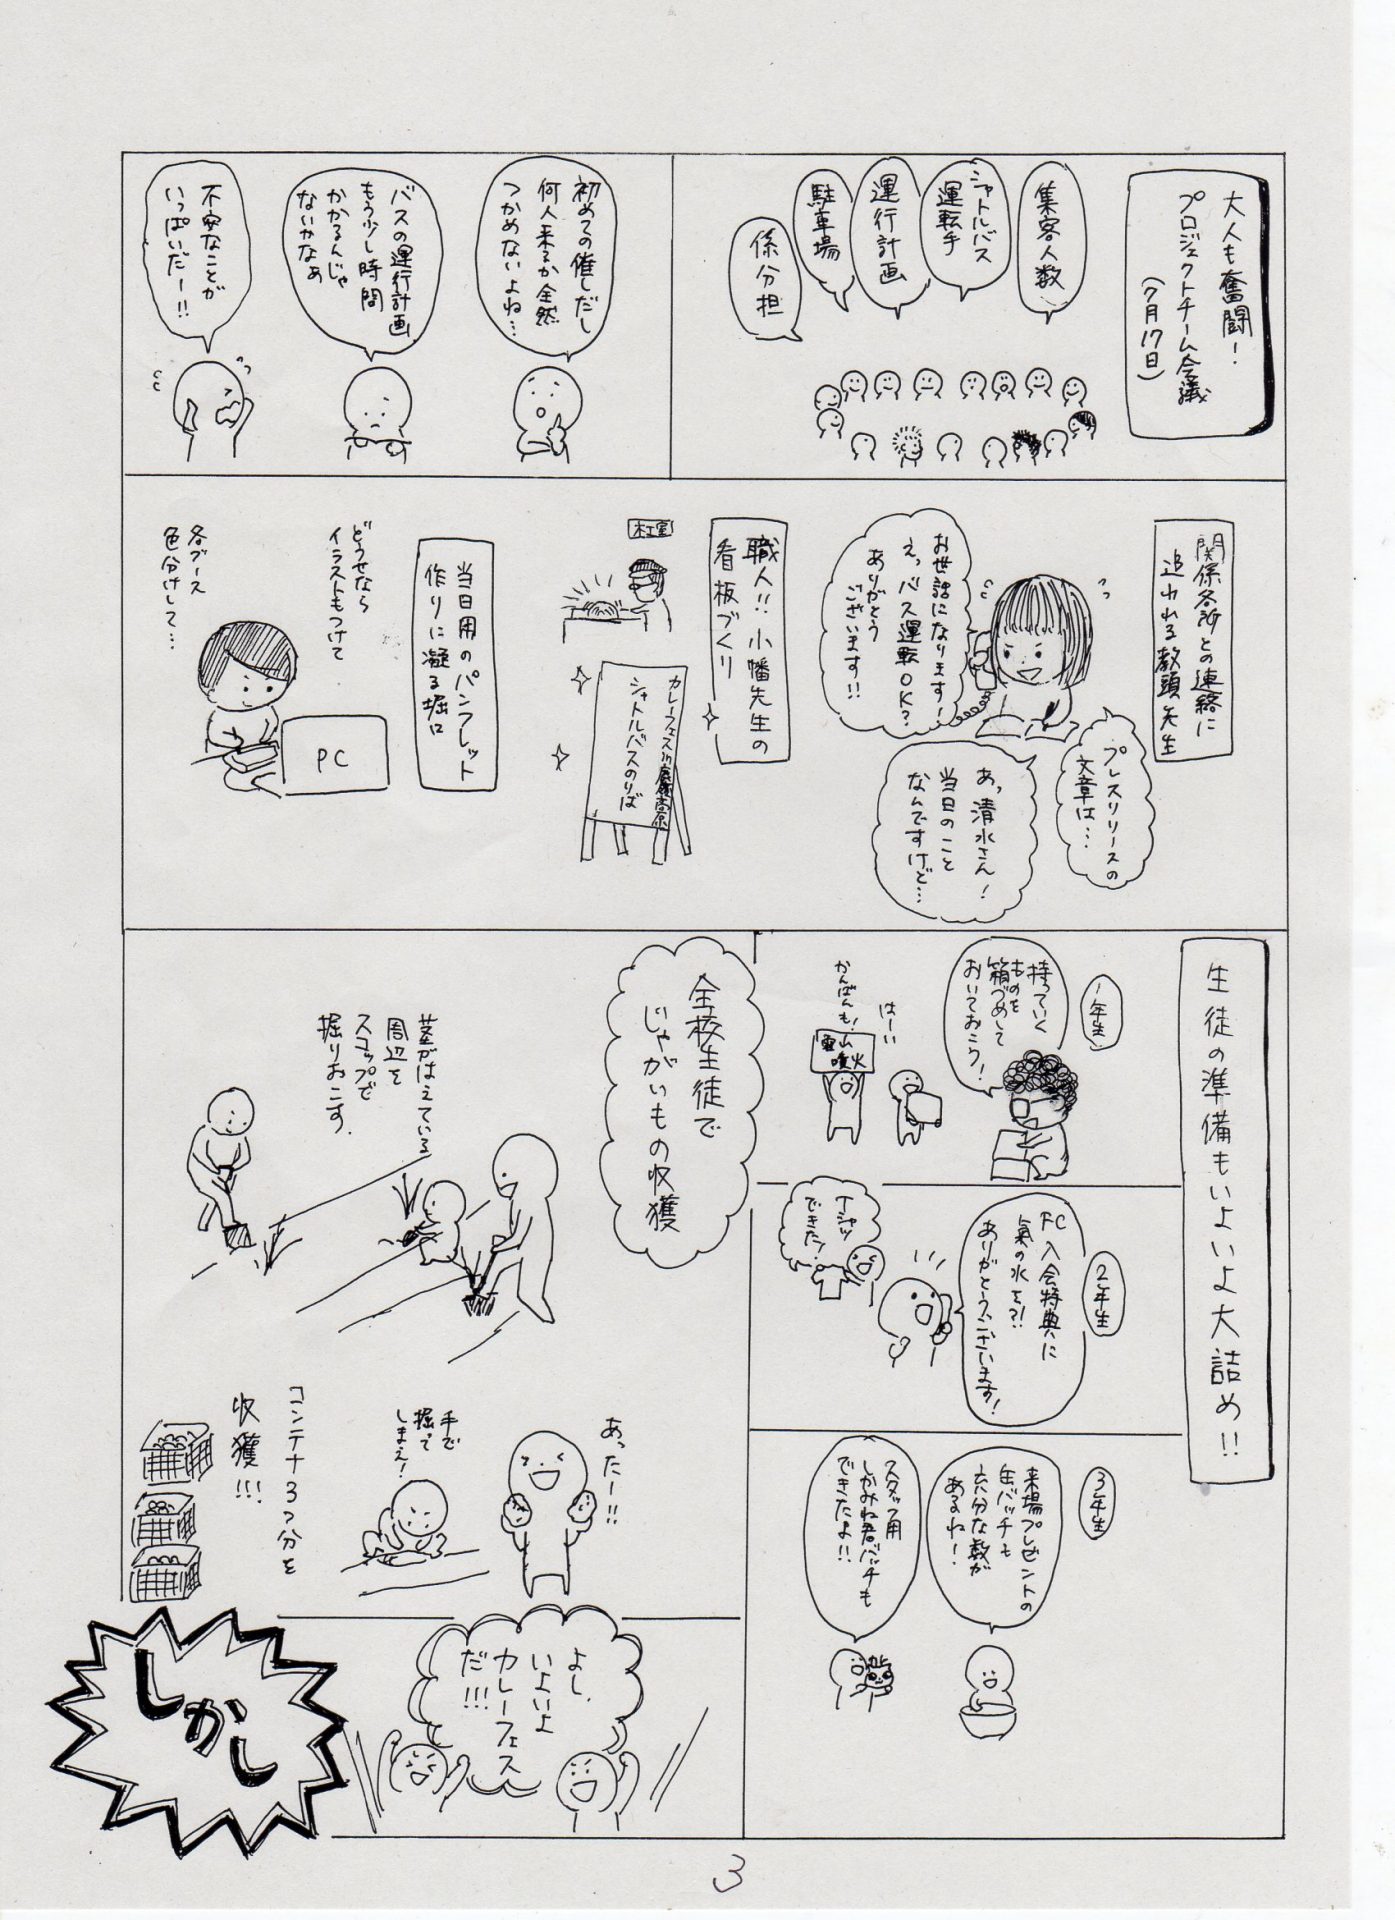 大人も奮闘!
プロジェクトチーム会議
(7月17日)
集客人数
シャトルバス
運転手
運行計画
駐車場
係分担
初めての催しだし
何人来るか全然
つかめないよね…
バスの運行計画
もう少し時間
かかるんじゃ
ないかなぁ
不安なことが
いっぱいだー!!
関係各所との連絡に
追われる教頭先生
お世話になります!
えっバス運転OK?
ありがとう
ございます!!
プレスリリースの
文章は…
あっ清水さん!
当日のこと
なんですけど…
職人!!小幡先生の
看板づくり
木工室
カレーフェスin鹿嶺高原
シャトルバスのりば
当日用のパンフレット
作りに凝る堀口
どうせなら
イラストもつけて
各ブース
色分けして…
PC
生徒の準備もいよいよ大詰め!!
1年生
持っていく
ものを
箱づめして
おいておこう!
はーい
かんばんも!
火山
噴火
2年生
FC入会特典に
氣の水を?!
ありがとうございます!
Tシャツ
できた!
3年生
来場プレゼントの
缶バッチも
充分な数が
あるね!
スタッフ用
しかみね君バッチも
できたよ!!
全校生徒で
じゃがいもの収獲
茎がはえている
周辺を
スコップで
掘りおこす.
あったー!!
手で
掘って
しまえ!
コンテナ3つ分を
収獲!!!
よし、
いよいよ
カレーフェス
だ!!!
しかし
3